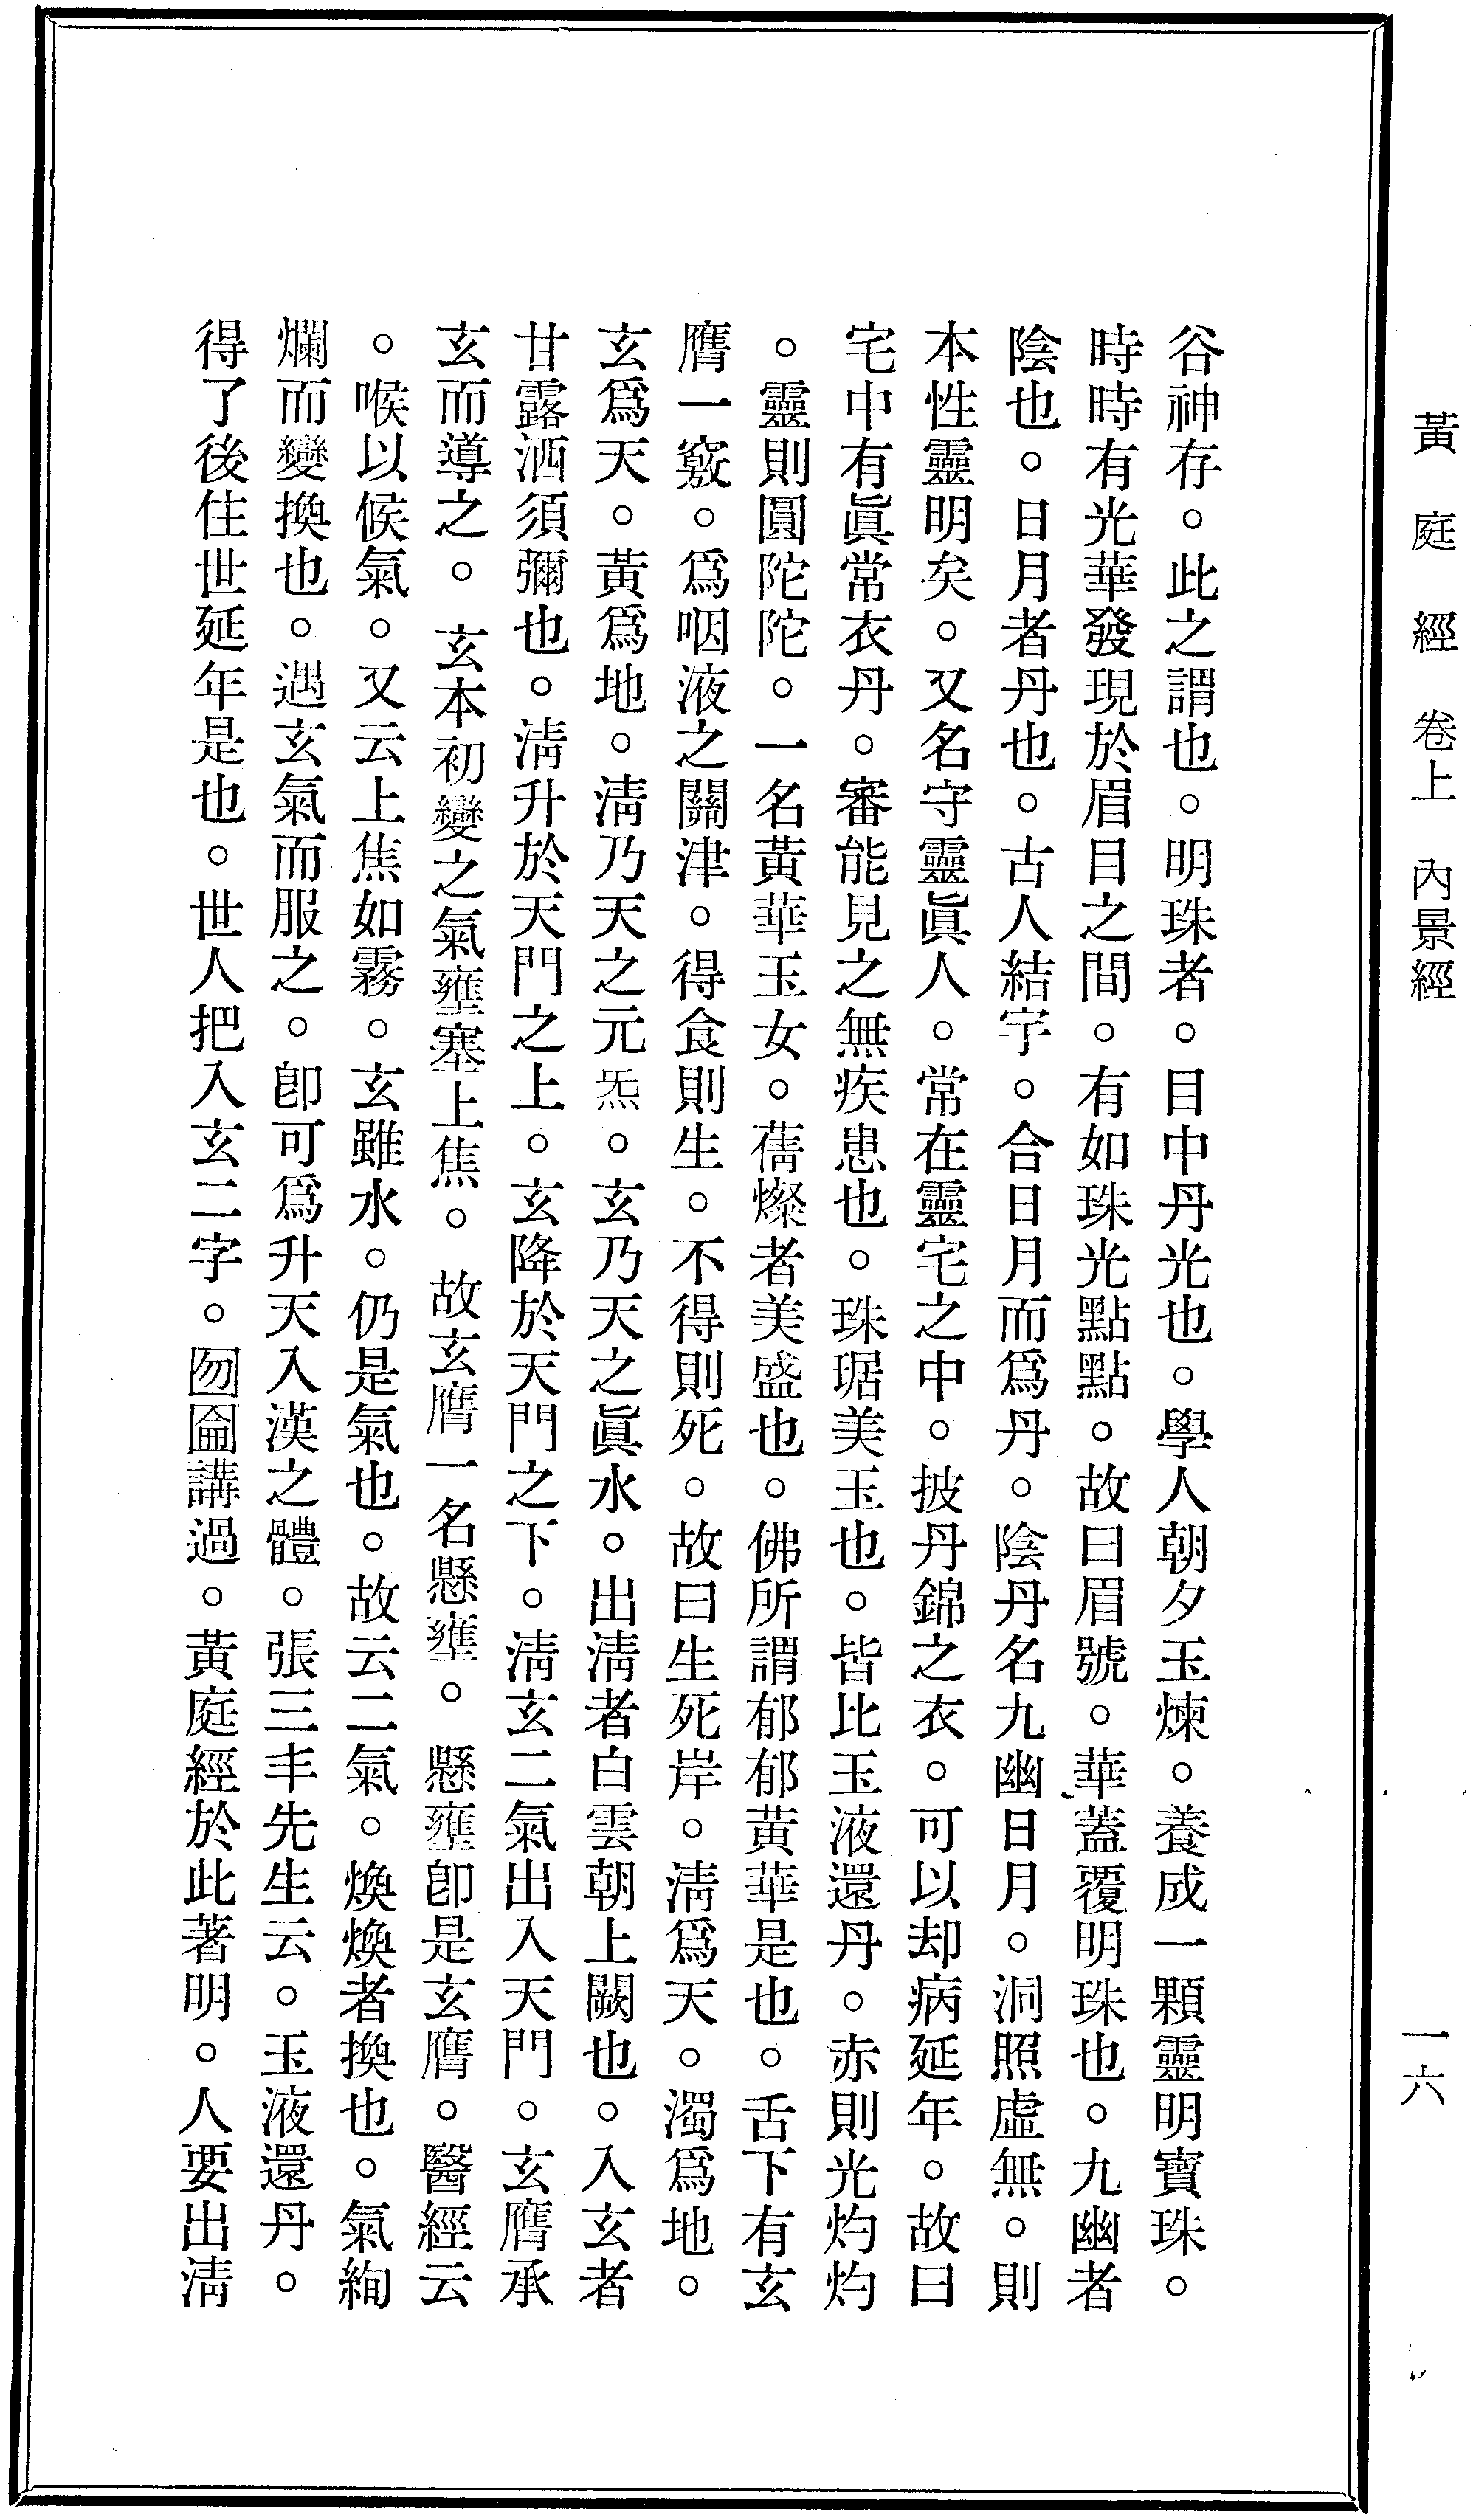 黃庭經　卷上　內景經
一六
谷神存。此之謂也。明珠者。目中丹光也。學人朝夕玉煉。養成一顆靈明寶珠。
時時有光華發現於眉目之間。有如珠光點點。故曰眉號。華蓋覆明珠也。九幽者
陰也。日月者丹也。古人結字。合日月而爲丹。陰丹名九幽日月。洞照虛無。則
本性靈明矣。又名守靈眞人。常在靈宅之中。披丹錦之衣。可以却病延年。故曰
宅中有眞常衣丹。審能見之無疾患也。珠琚美玉也。皆比玉液還丹。赤則光灼灼
。靈則圓陀陀。一名黃華玉女。蒨燦者美盛也。佛所謂郁郁黃華是也。舌下有玄
膺一竅。爲咽液之關津。得食則生。不得則死。故曰生死岸。淸爲天。濁爲地。
玄爲天。黃爲地。淸乃天之元炁。玄乃天之眞水。出淸者白雲朝上闕也。入玄者
甘露洒須彌也。淸升於天門之上。玄降於天門之下。淸玄二氣出入天門。玄膺承
玄而導之。玄本初變之氣壅塞上焦。故玄膺一名懸壅。懸壅卽是玄膺。醫經云
。喉以候氣。又云上焦如霧。玄雖水。仍是氣也。故云二氣。煥煥者換也。氣絢
爛而變換也。遇玄氣而服之。卽可爲升天入漢之體。張三丰先生云。玉液還丹。
得了後住世延年是也。世人把入玄二字。囫圇講過。黃庭經於此著明。人要出淸